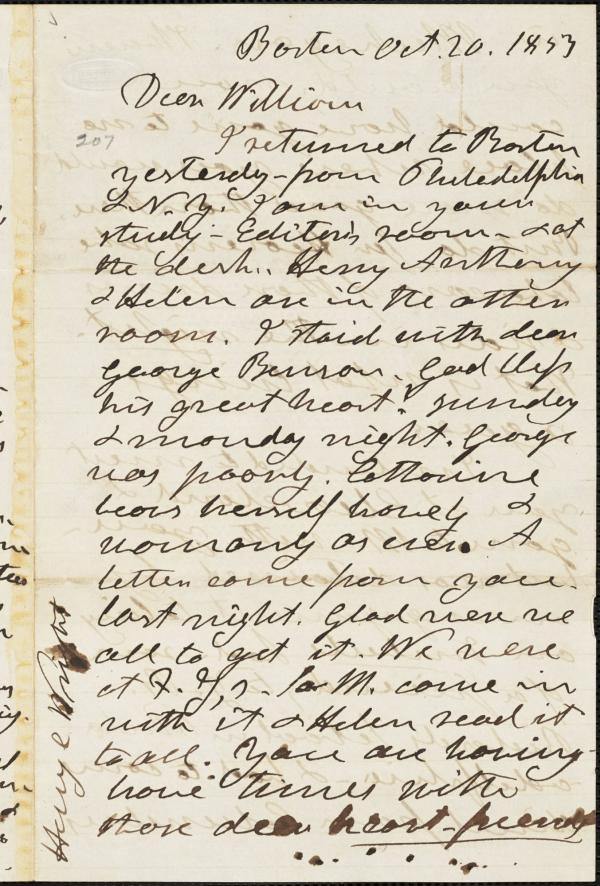 Boston Oct. 20. 1853
Dear William
207
I returned to Boston
yesterdy - from Philadelphia
& N. Y. I am in your
study - Editor's room - & at
the desk. Henry Anthony
& Helen are in the other
room. I staid with dear
George Benson. God bless
his great heart. Sunday
& Monday night. George
was poorly. Catharine
bears herself bravely &
womanly as ever. A
letter came from you
last night. Glad were we
all to get it. We were
at F. J,s. M. came in
with it & Helen read it
to all. You are having
times with
those dear heart-friends
Henry C Wright